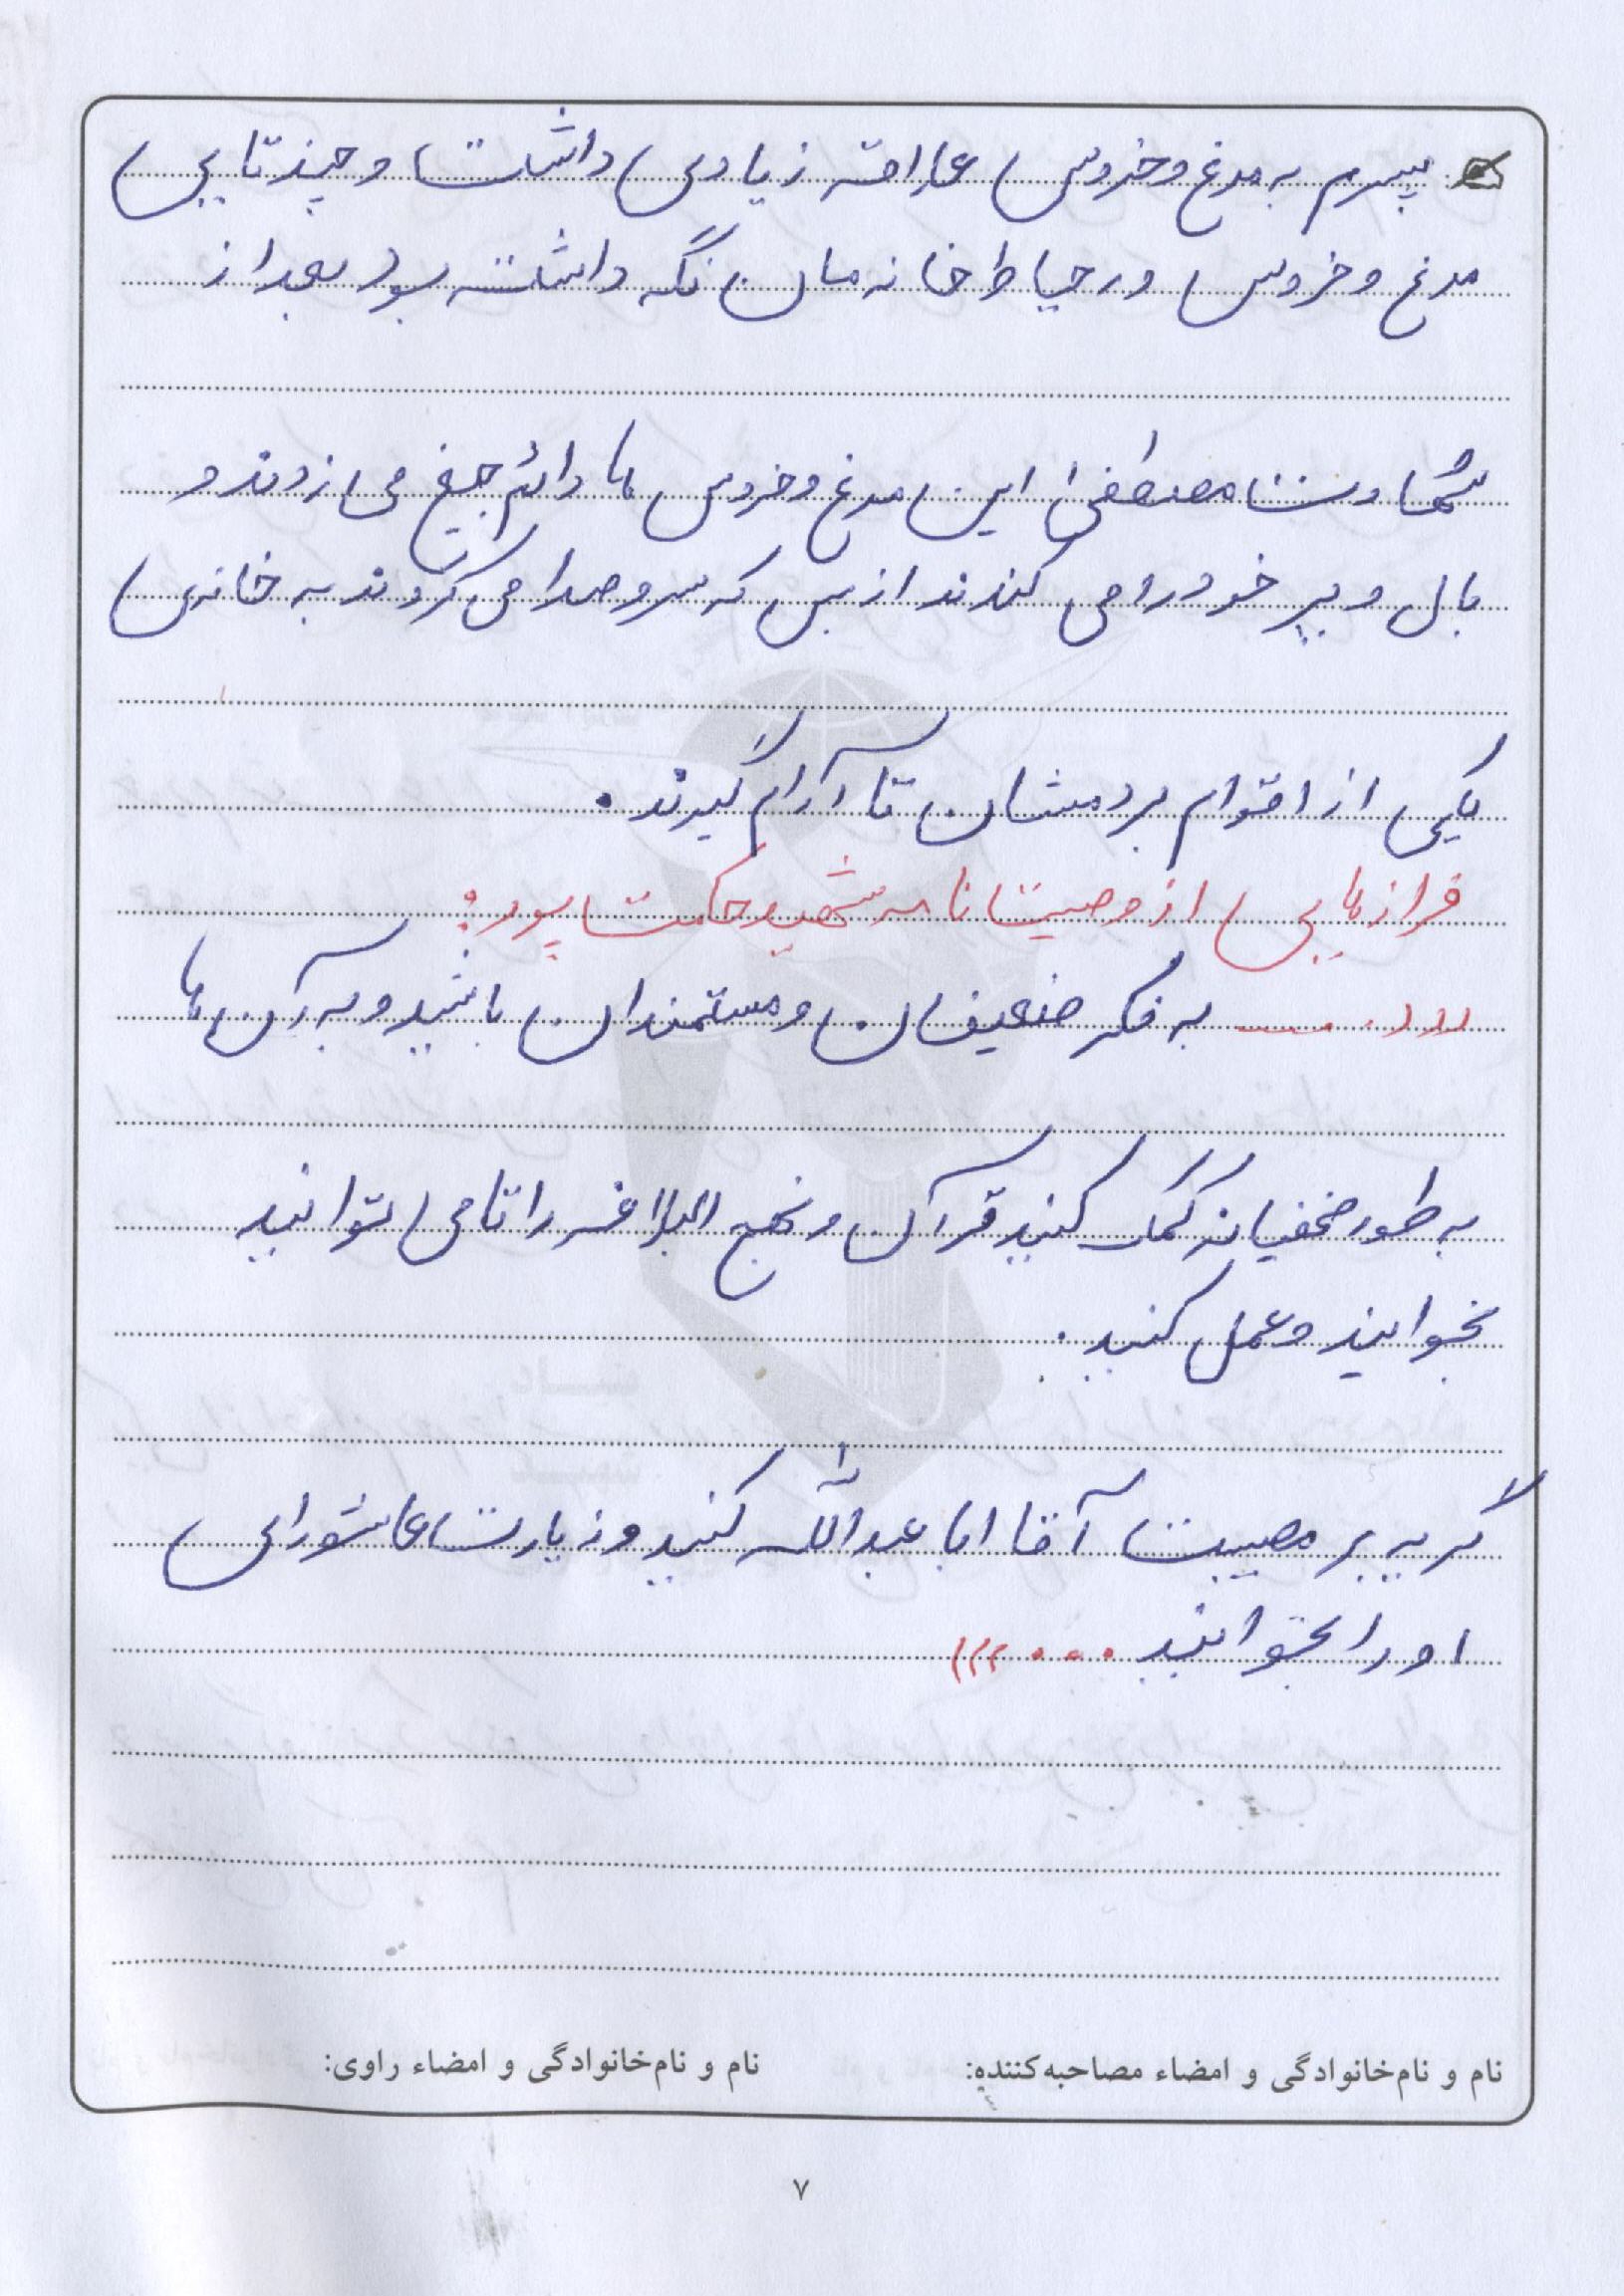 پسرم به مرغ و خروس علاقه زیادی داشت و چندتایی
مرغ و خروس در حیاط خانه مان نگه داشته بود بعد از
شهادت مصطفی این مرغ و خروس ها دائم جیغ می زدند و
بال و پر خود را می کندند از بس که سر و صدا می کردند به خانه ی
یکی از اقوام بردمشان تا آرام گیرند.
فرازهایی از وصیت نامه شهید حکمت پور:
به فکر ضعیفان و مستمندان باشید و به آن ها
به طور مخفیانه کمک کنید قرآن و نهج البلاغه را تا می توانید
بخوانید و عمل کنید.
گریه بر مصیبت آقا ابا عبدالله کنید و زیارت عاشورای
او را بخوانید ...
نام و نام‌خانوادگی و امضاء مصاحبه‌کننده: نام و نام‌خانوادگی و امضاء راوی:
۷